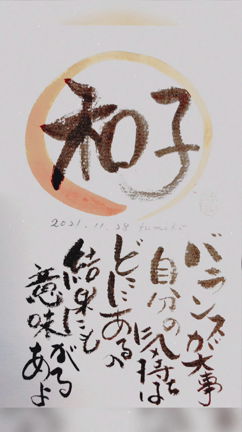 和子
2021.11.28 fumiko
バランスが大事
自分の気持ちは
どこにあるの
結果にも
意味がある
よ